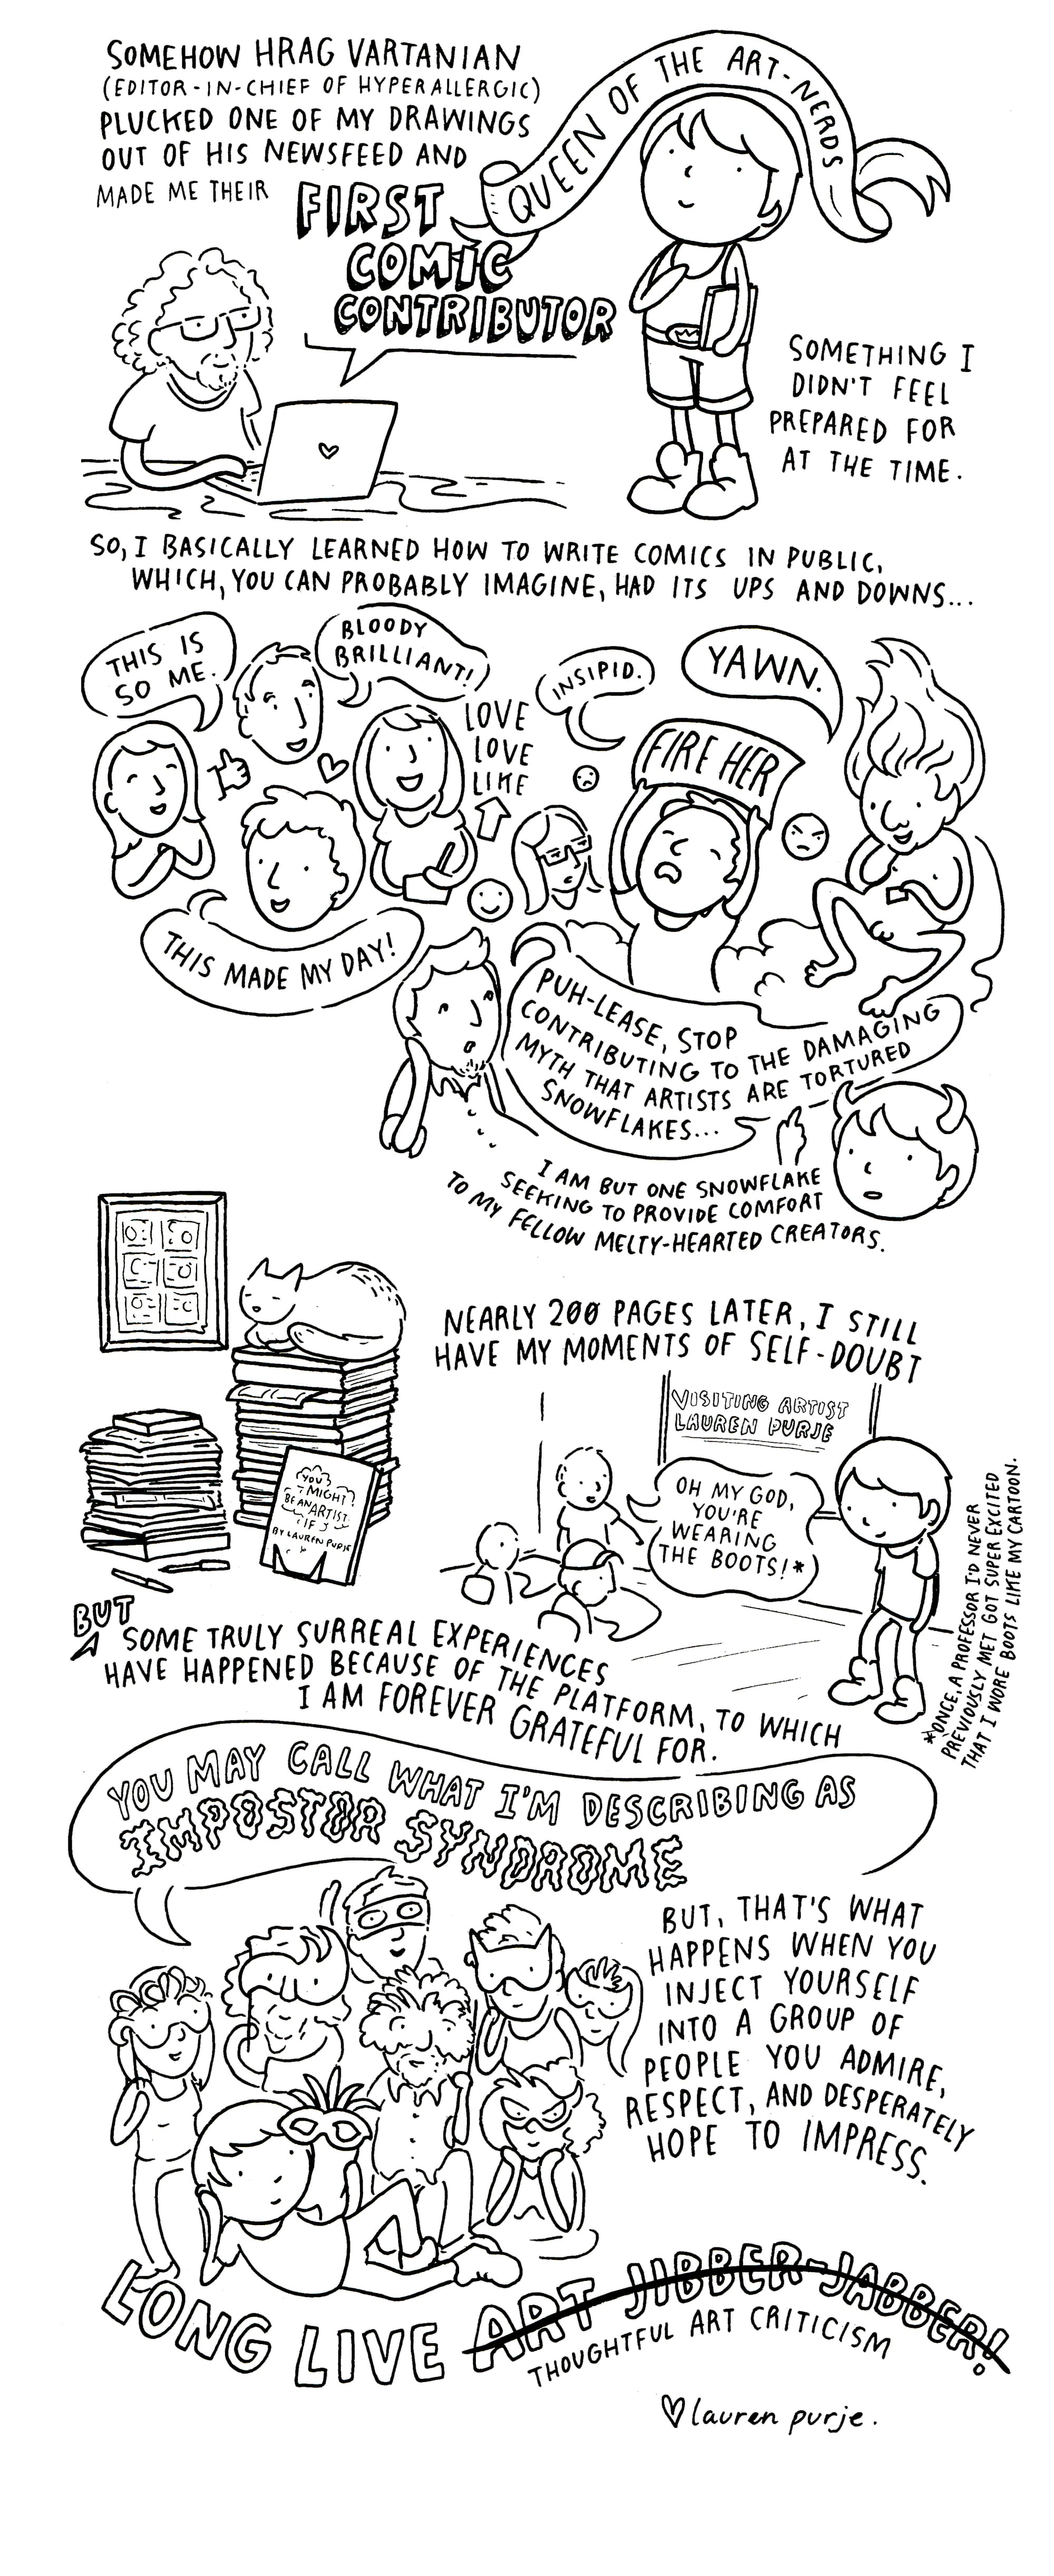 SOMEHOW HRAG VARTANIAN
(EDITOR-IN-CHIEF OF HYPERALLERGIC)
PLUCKED ONE OF MY DRAWINGS
OUT OF HIS NEWSFEED AND
MADE ME THEIR
FIRST
COMIC
CONTRIBUTOR
QUEEN OF THE ART-NERDS
SOMETHING I
DIDN'T FEEL
PREPARED FOR
AT THE TIME.
SO, I BASICALLY LEARNED HOW TO WRITE COMICS IN PUBLIC,
WHICH, YOU CAN PROBABLY IMAGINE, HAD ITS UPS AND DOWNS...
THIS IS
SO ME.
BLOODY
BRILLIANT!
LOVE
LOVE
LIKE
INSIPID.
YAWN.
FIRE HER
THIS MADE MY DAY!
PUH-LEASE, STOP
CONTRIBUTING TO THE DAMAGING
MYTH THAT ARTISTS ARE TORTURED
SNOWFLAKES...
I AM BUT ONE SNOWFLAKE
SEEKING TO PROVIDE COMFORT
TO MY FELLOW MELTY-HEARTED CREATORS.
NEARLY 200 PAGES LATER, I STILL
HAVE MY MOMENTS OF SELF-DOUBT
YOU
MIGHT
BE AN ARTIST
IF
BY LAUREN PURJE
VISITING ARTIST
LAUREN PURJE
OH MY GOD,
YOU'RE
WEARING
THE BOOTS!*
*ONCE, A PROFESSOR I'D NEVER
PREVIOUSLY MET GOT SUPER EXCITED
THAT I WORE BOOTS LIKE MY CARTOON.
BUT
SOME TRULY SURREAL EXPERIENCES
HAVE HAPPENED BECAUSE OF THE PLATFORM, TO WHICH
I AM FOREVER GRATEFUL FOR.
YOU MAY CALL WHAT I'M DESCRIBING AS
IMPOSTOR SYNDROME
BUT, THAT'S WHAT
HAPPENS WHEN YOU
INJECT YOURSELF
INTO A GROUP OF
PEOPLE YOU ADMIRE,
RESPECT, AND DESPERATELY
HOPE TO IMPRESS.
LONG LIVE ART JIBBER-JABBER!
THOUGHTFUL ART CRITICISM
lauren purje.